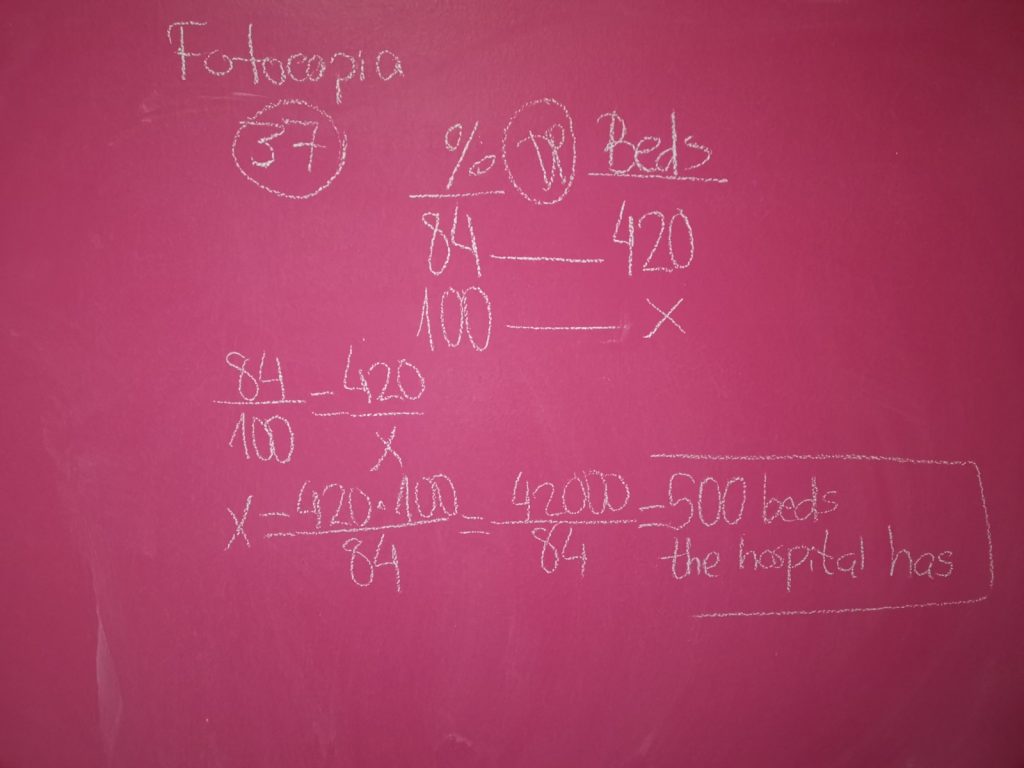 Fotocopia
37
% DP Beds
84 — 420
100 — x
84/100 = 420/x
x = 420·100/84 = 42000/84 = 500 beds
the hospital has